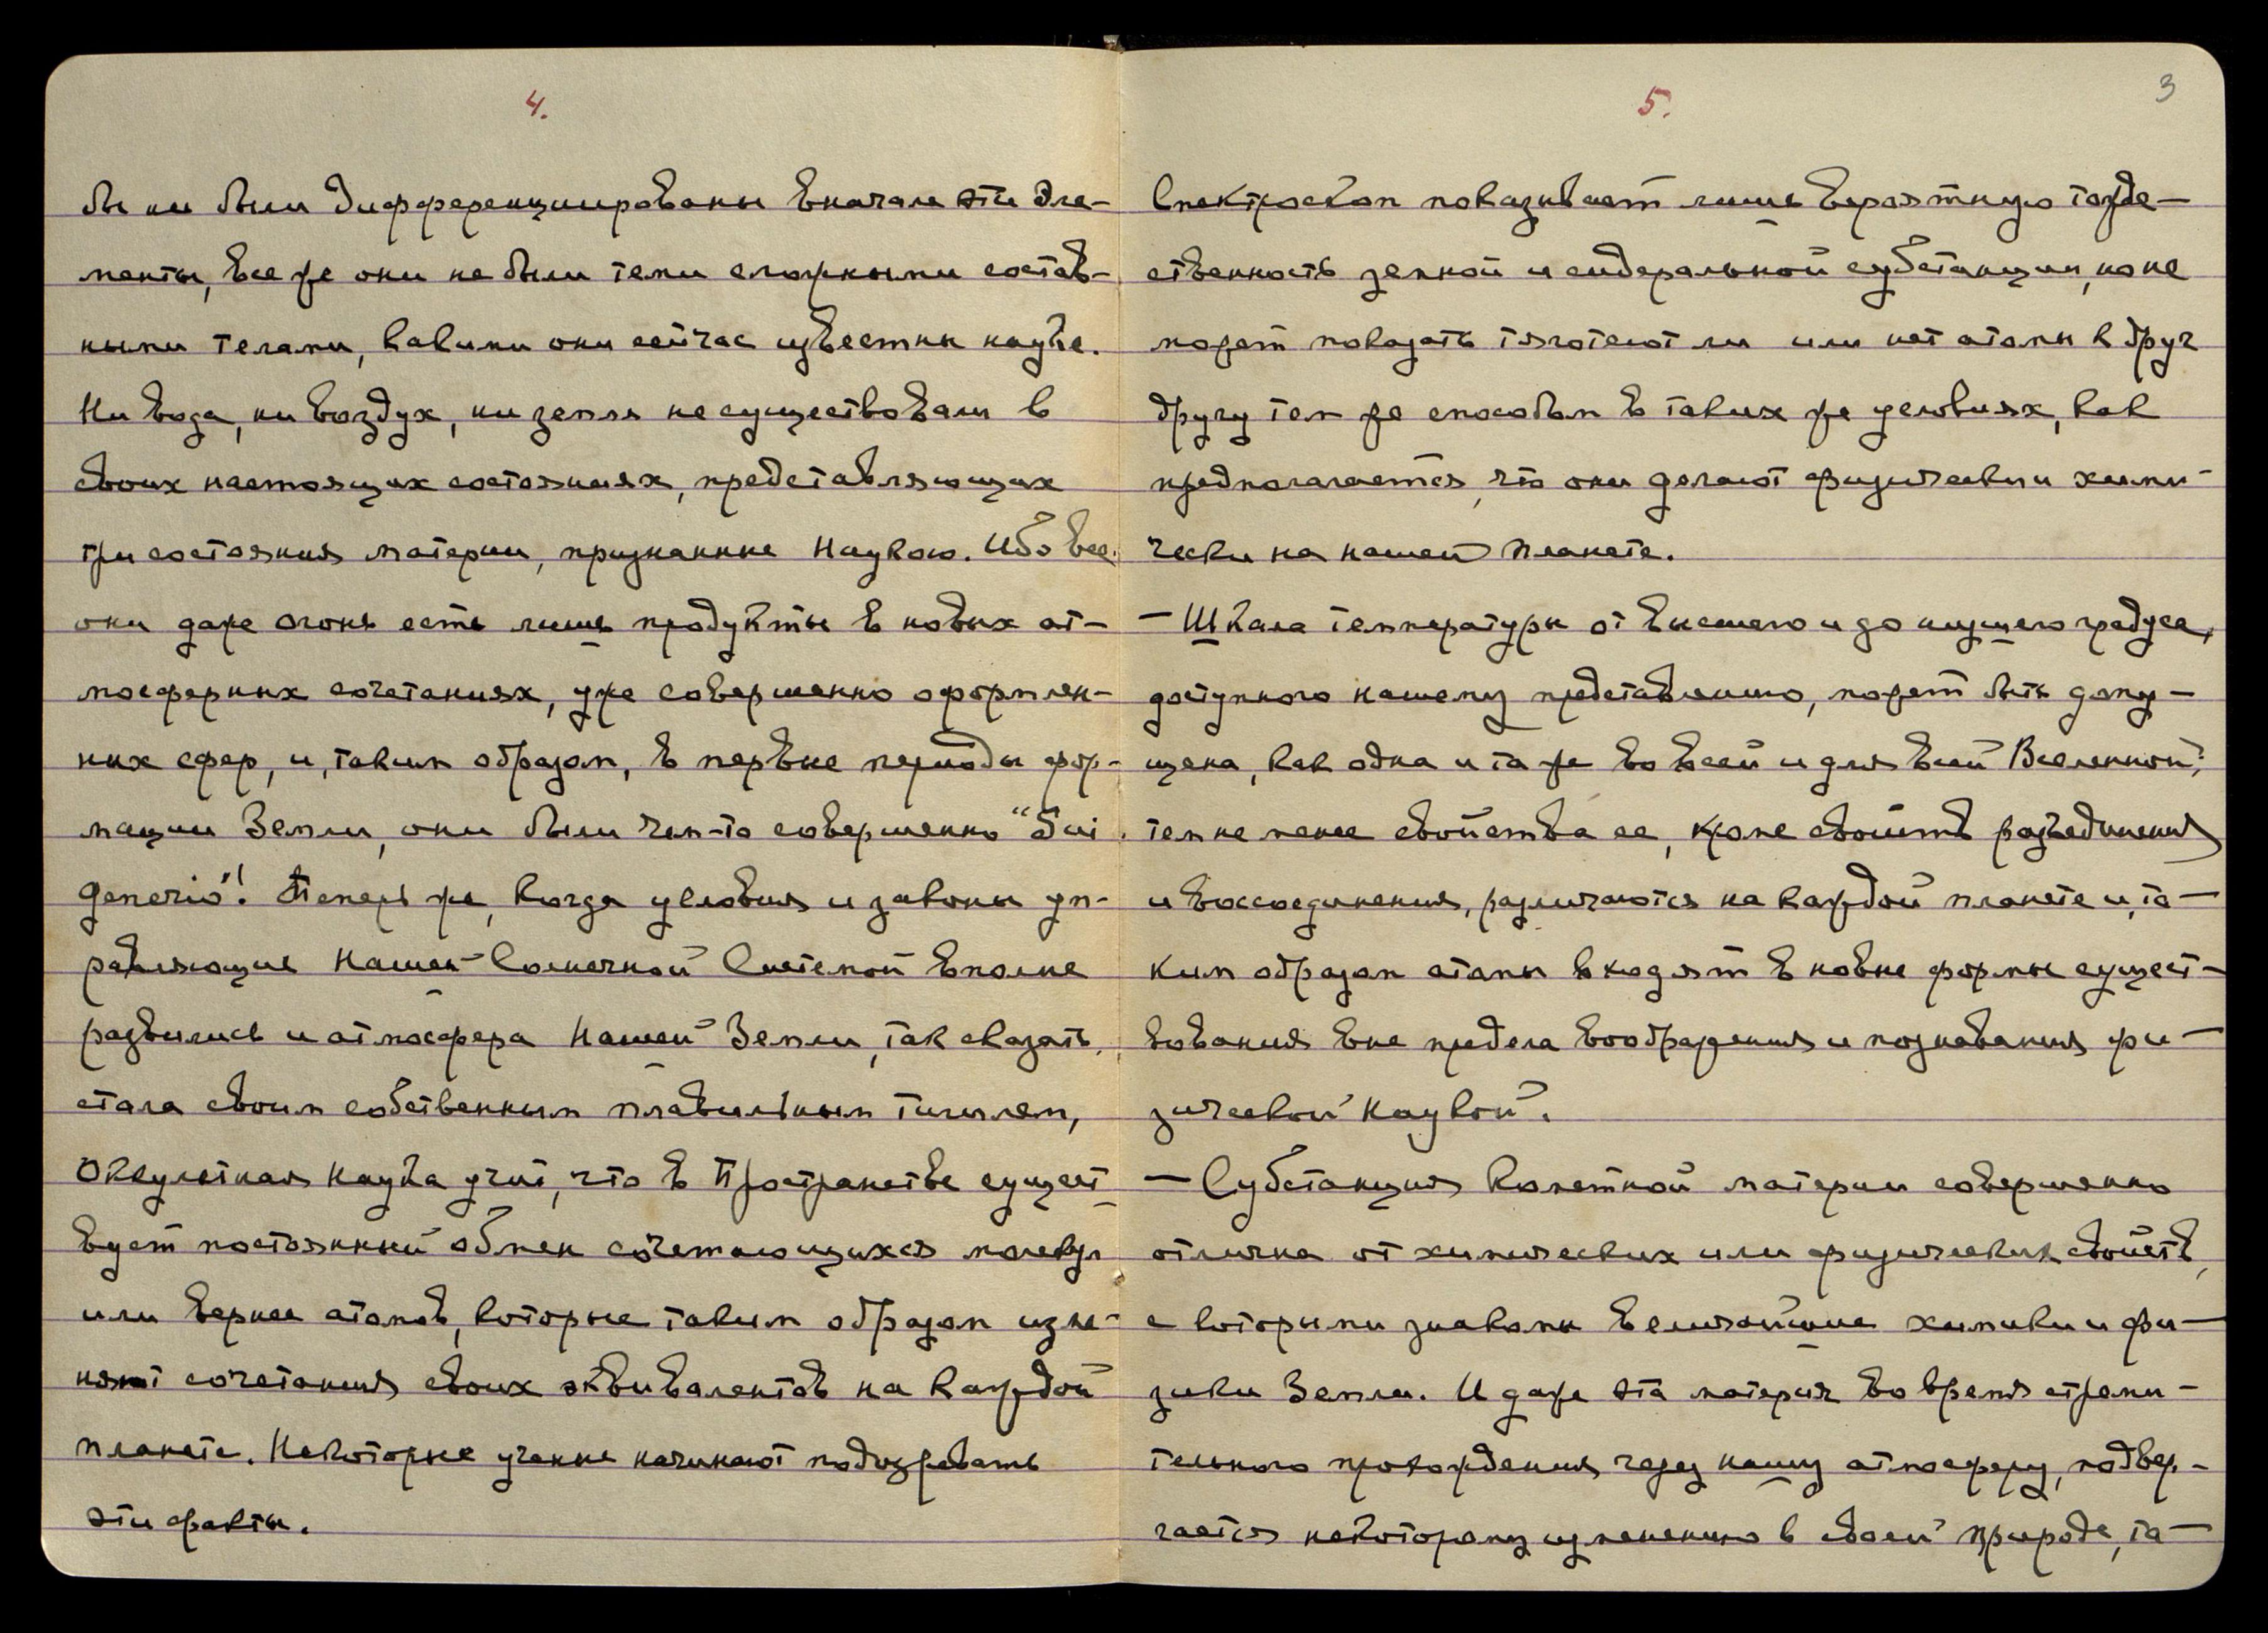 4.
бы ни были дифференциированы вначале эти эле-
менты, все же они не были теми сложными состав-
ными телами, какими они сейчас известны науке.
Ни вода, ни воздух, ни земля не существовали в
своих настоящих состояниях, представляющих
три состояния материи, признанные Наукою. Ибо все
они даже огонь есть лишь продукты в новых ат-
мосферных сочетаниях, уже совершенно оформлен-
ных сфер, и, таким образом, в первые периоды фор-
мации Земли, они были чем-то совершенно "Sui
generis"! Теперь же, когда условия и законы уп-
равляющие Нашей Солнечной Системой вполне
развились и атмосфера Нашей Земли, так сказать,
стала своим собственным плавильным тиглем,
Оккультная Наука учит, что в Пространстве сущест-
вует постоянный обмен сочетающихся молекул
или вернее атомов, которые таким образом изме-
няют сочетания своих эквивалентов на каждой
планете. Некоторые ученые начинают подозревать
эти факты.
5.
3
Спектроскоп показывает лишь вероятную тожде-
ственность земной и сидеральной субстанции, но не
может показать тяготеют ли или нет атомы к друг
другу тем же способом в таких же условиях, как
предполагается, что они делают физически и хими-
чески на нашей планете.
— Шкала температуры от высшего и до низшего градуса,
доступного нашему представлению, может быть допу-
щена, как одна и та же во всей и для всей Вселенной;
тем не менее свойства ее, кроме свойств разъединения
и воссоединения, различаются на каждой планете и, та-
ким образом атомы входят в новые формы сущест-
вования вне предела воображения и познавания фи-
зической Наукой.
— Субстанция Кометной материи совершенно
отлична от химических или физических свойств,
с которыми знакомы величайшие химики и фи-
зики Земли. И даже эта материя во время стреми-
тельного прохождения через нашу атмосферу, подвер-
гается некоторому изменению в своей природе, та-